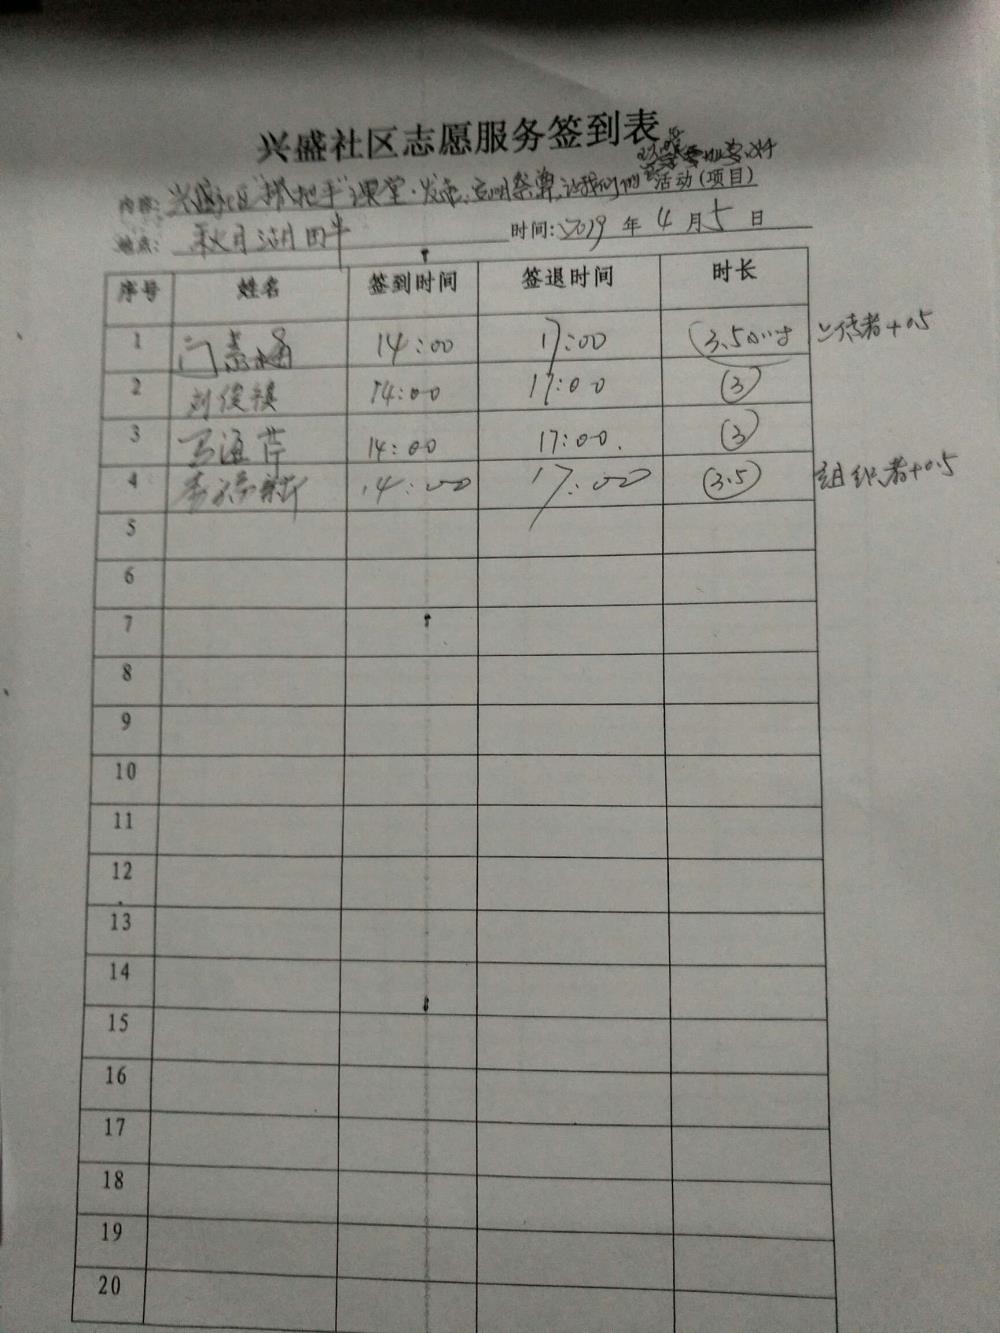 兴盛社区志愿服务签到表
内容: 兴盛社区"抓把手"课堂·发走,文明祭奠, 活动(项目)
地点: 秋月湖田半 时间: 2019 年 4 月 5 日
序号 姓名 签到时间 签退时间 时长
1 14:00 17:00 3.5小时 者+0.5
2 刘俊禛 14:00 17:00 3
3 海芹 14:00 17:00. 3
4 李 新 14:00 17:00 3.5 组织者+0.5
5
6
7
8
9
10
11
12
13
14
15
16
17
18
19
20